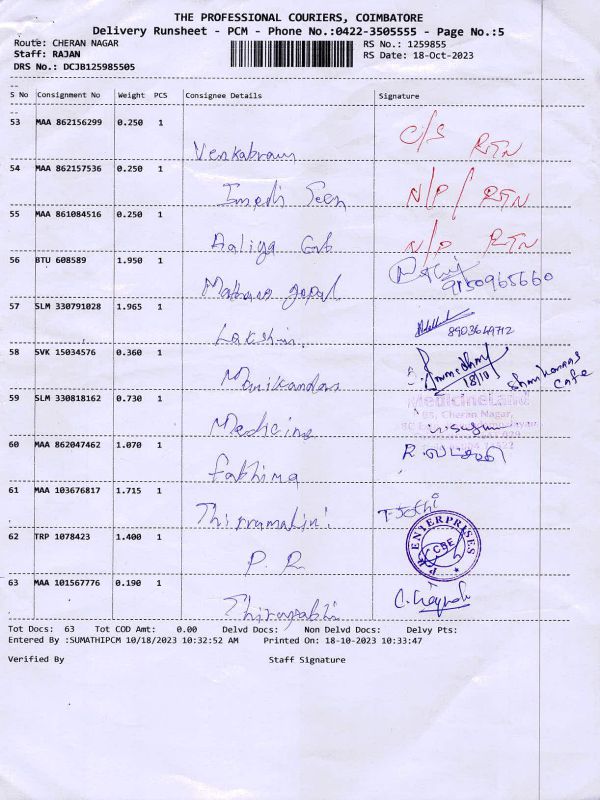 THE PROFESSIONAL COURIERS, COIMBATORE
Delivery Runsheet - PCM - Phone No.:0422-3505555 - Page No.:5
Route: CHERAN NAGAR RS No.: 1259855
Staff: RAJAN RS Date: 18-Oct-2023
DRS No.: DCJB125985505
S No Consignment No Weight PCS Consignee Details Signature
53 MAA 862156299 0.250 1
Venkabram C/S RTN
54 MAA 862157536 0.250 1
N/P / RTN
55 MAA 861084516 0.250 1
Aaliya N/P RTN
56 BTU 608589 1.950 1
gopal 9150965660
57 SLM 330791028 1.965 1
Lakshmi 8903649712
58 SVK 15034576 0.360 1
Manikandan 18/10 Cafe
59 SLM 330818162 0.730 1
Medicine MedicineLand
83, Cheran Nagar,
60 MAA 862047462 1.070 1
Fathima R.
61 MAA 103676817 1.715 1
T. Jothi
62 TRP 1078423 1.400 1
P. R ENTERPRISES CBE
63 MAA 101567776 0.190 1
Tot Docs: 63 Tot COD Amt: 0.00 Delvd Docs: Non Delvd Docs: Delvy Pts:
Entered By :SUMATHIPCM 10/18/2023 10:32:52 AM Printed On: 18-10-2023 10:33:47
Verified By Staff Signature